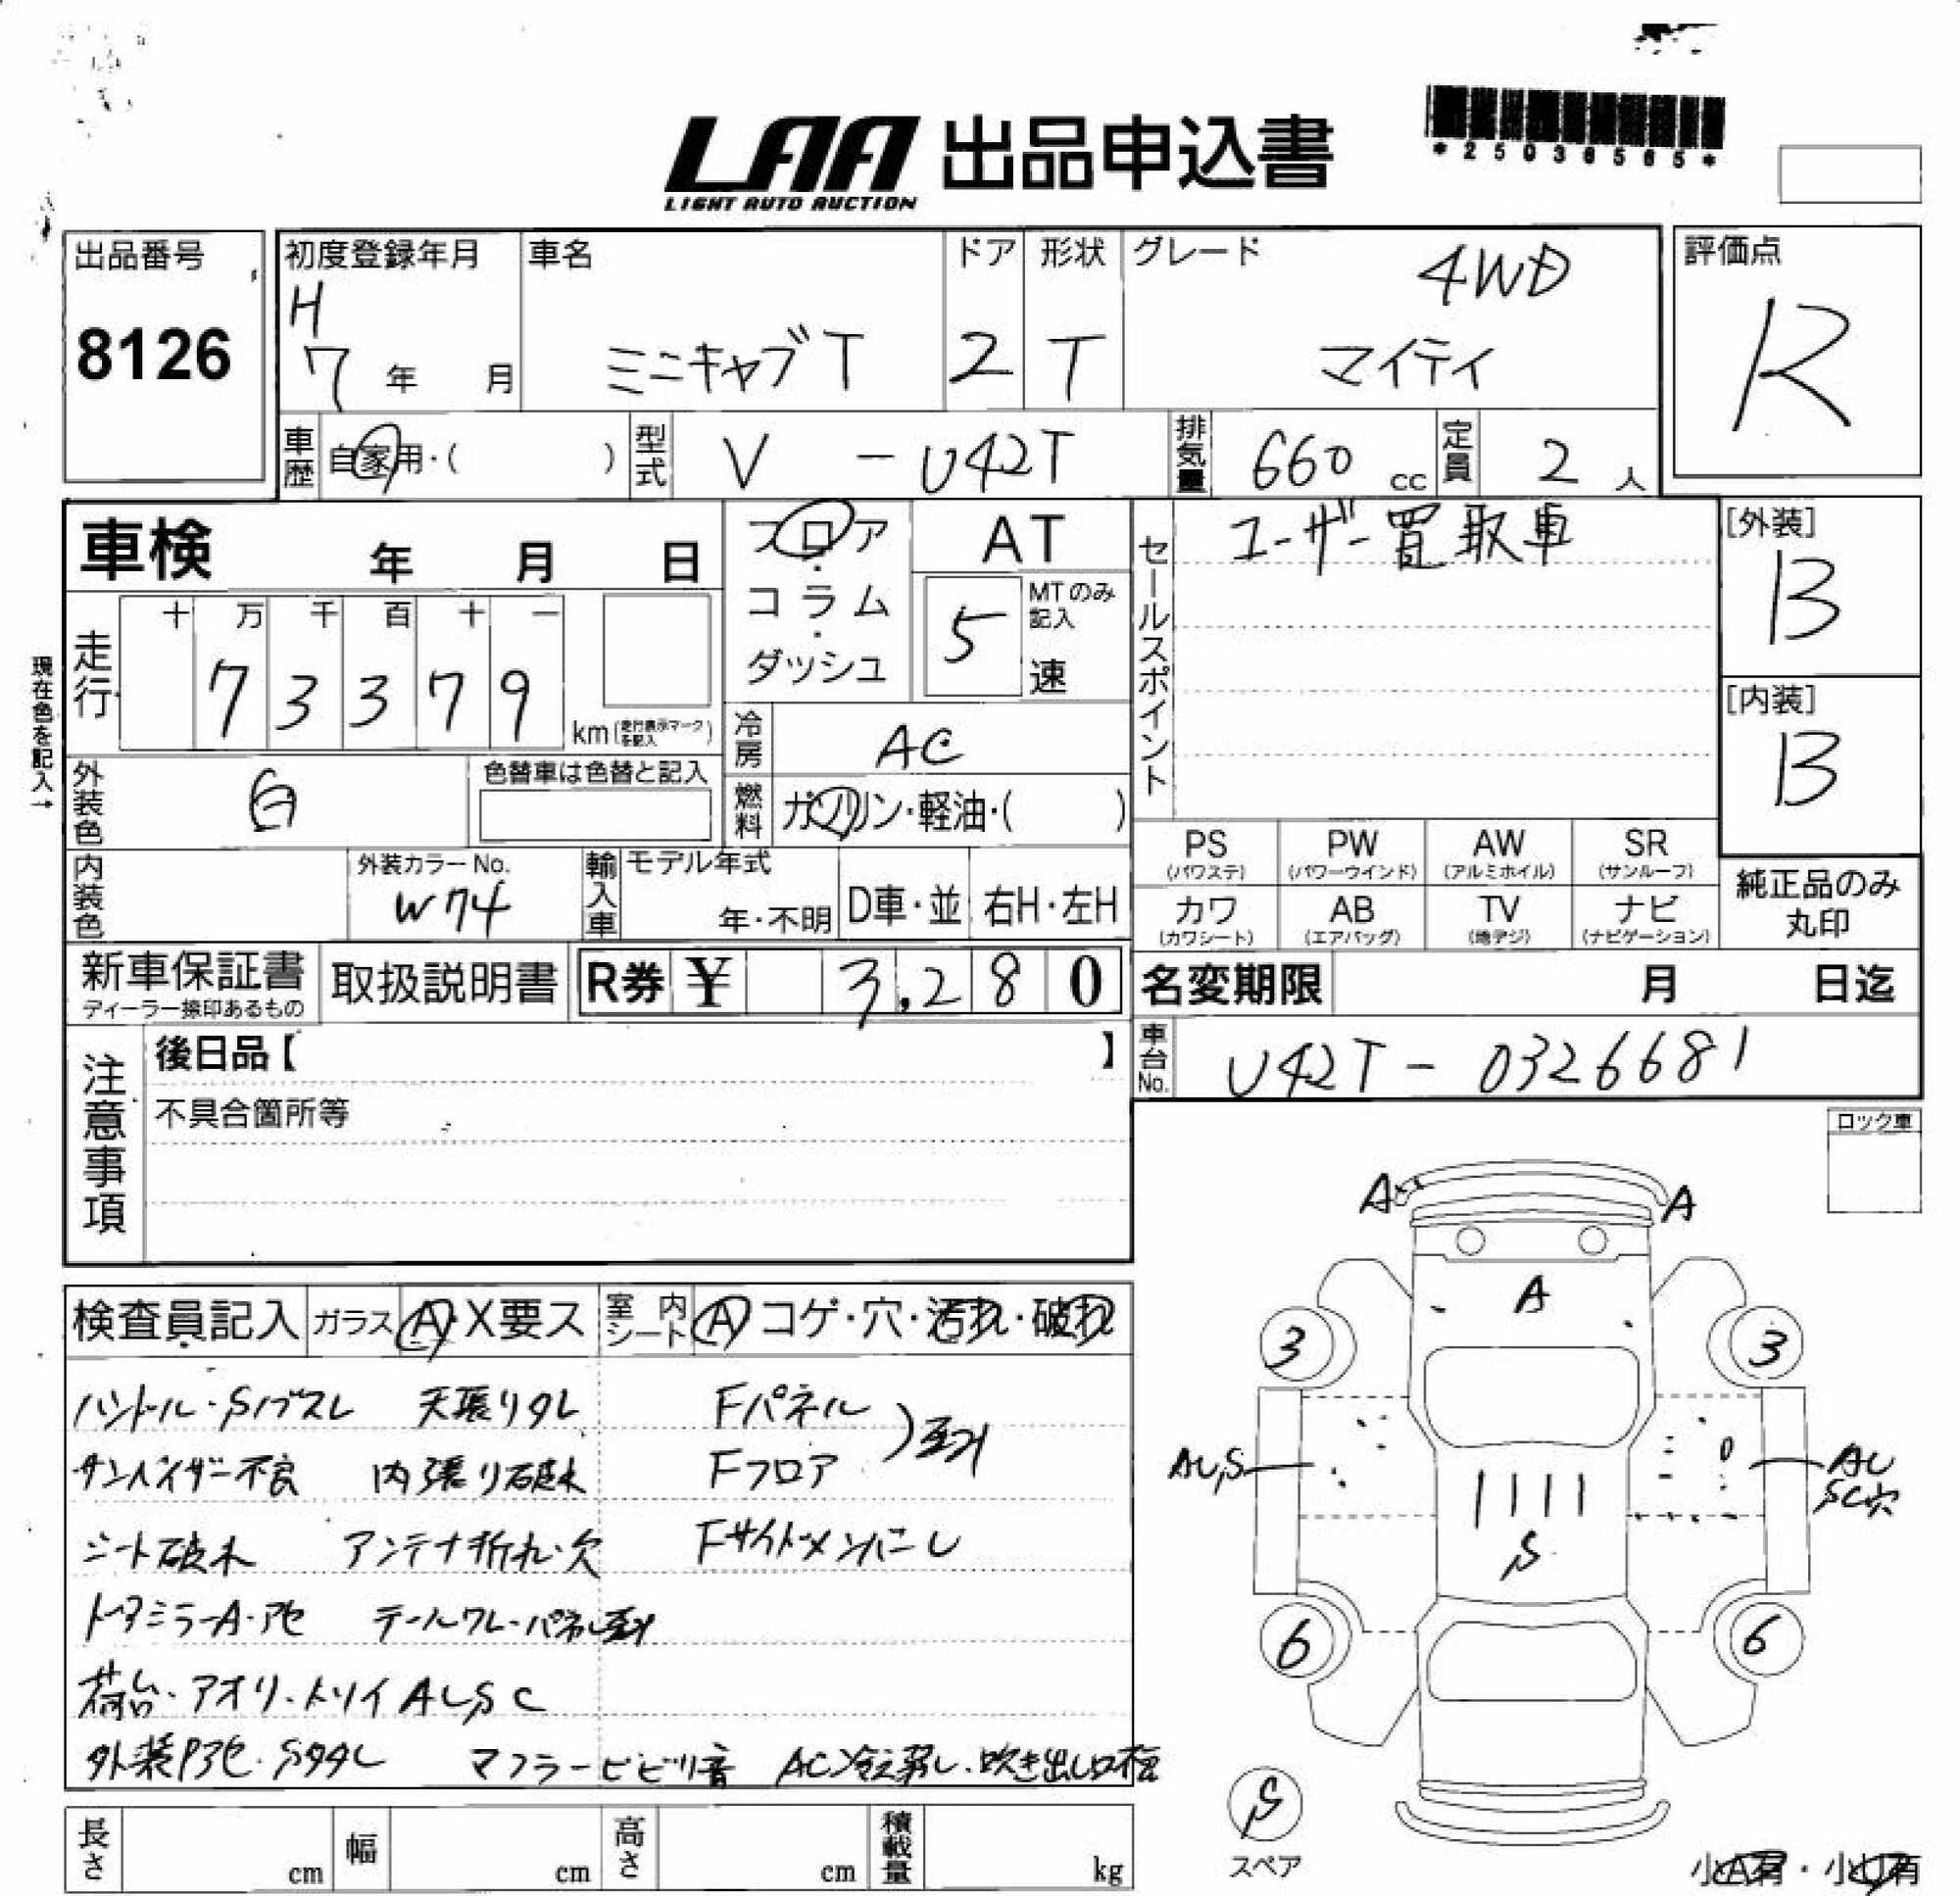 LAA 出品申込書
LIGHT AUTO AUCTION
*25036565*
出品番号
8126
初度登録年月
H
7 年 月
車名
ミニキャブT
ドア
2
形状
T
グレード
4WD
マイティ
評価点
R
車歴
自家用・( )
型式
V - U42T
排気量
660 cc
定員
2 人
車検 年 月 日
フロア・コラム・ダッシュ
AT
5
MTのみ記入
速
セールスポイント
ユーザー買取車
[外装]
B
[内装]
B
現在色を記入→
走行
十 万 千 百 十 一
7 3 3 7 9
km(走行表示マークを記入)
冷房
AC
燃料
ガソリン・軽油・( )
外装色
白
色替車は色替と記入
内装色
外装カラーNo.
W74
輸入車
モデル年式
年・不明
D車・並
右H・左H
PS (パワステ)
PW (パワーウインド)
AW (アルミホイル)
SR (サンルーフ)
カワ (カワシート)
AB (エアバッグ)
TV (地デジ)
ナビ (ナビゲーション)
純正品のみ
丸印
新車保証書
ディーラー捺印あるもの
取扱説明書
R券 ¥ 3,280
名変期限 月 日迄
車台No.
U42T - 0326681
注意事項
後日品【 】
不具合箇所等
ロック車
検査員記入
ガラス A・X要ス
室内シート A コゲ・穴・汚れ・破れ
ハンドル・Sノブスレ 天張りタレ Fパネル
サンバイザー不良 内張り破れ Fフロア
シート破れ アンテナ折れ・欠 FサイドメンバーU
ドアミラーA・アセ
荷台・アオリ・トリイAU,SC
外装アセ・Sタタレ マフラービビリ音 AC冷え弱し・吹き出し口
A A
A
3 3
AU,S
AU
SC穴
S
6 6
S
スペア
小A有・小U有
長さ cm
幅 cm
高さ cm
積載量 kg